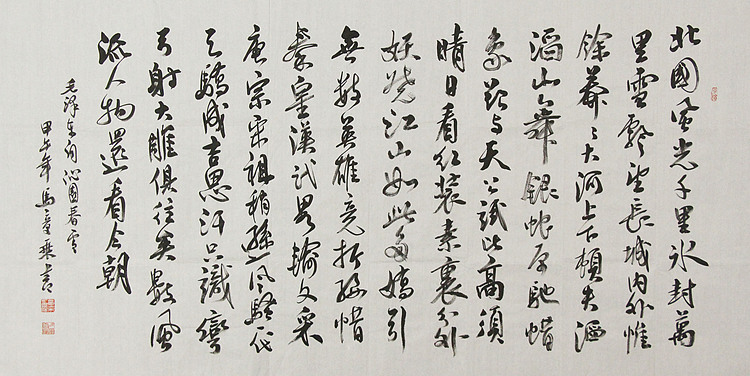 北國風光千里冰封萬
里雪飄望長城內外惟
餘莽々大河上下頓失滔
滔山舞銀蛇原馳蠟
象欲与天公試比高須
晴日看紅裝素裹分外
妖嬈江山如此多嬌引
無數英雄競折腰惜
秦皇漢武畧輸文采
唐宗宋祖稍遜風騷一代
天驕成吉思汗只識彎
弓射大雕俱往矣數風
流人物還看今朝
毛澤東詞沁園春雪
甲午年馬書